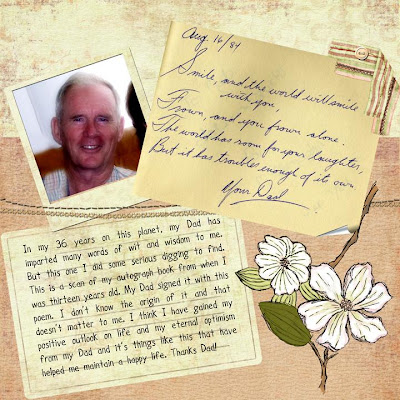 Aug. 16/84
Smile, and the world will smile
with you,
Frown, and you frown alone.
The world has room for your laughter,
But it has troubles enough of its own
Your Dad
In my 36 years on this planet, my Dad has
imparted many words of wit and wisdom to me.
But this one I did some serious digging to find.
This is a scan of my autograph book from when I
was thirteen years old. My Dad signed it with this
poem. I don't know the origin of it and that
doesn't matter to me. I think I have gained my
positive outlook on life and my eternal optimism
from my Dad and it's things like this that have
helped me maintain a happy life. Thanks Dad!